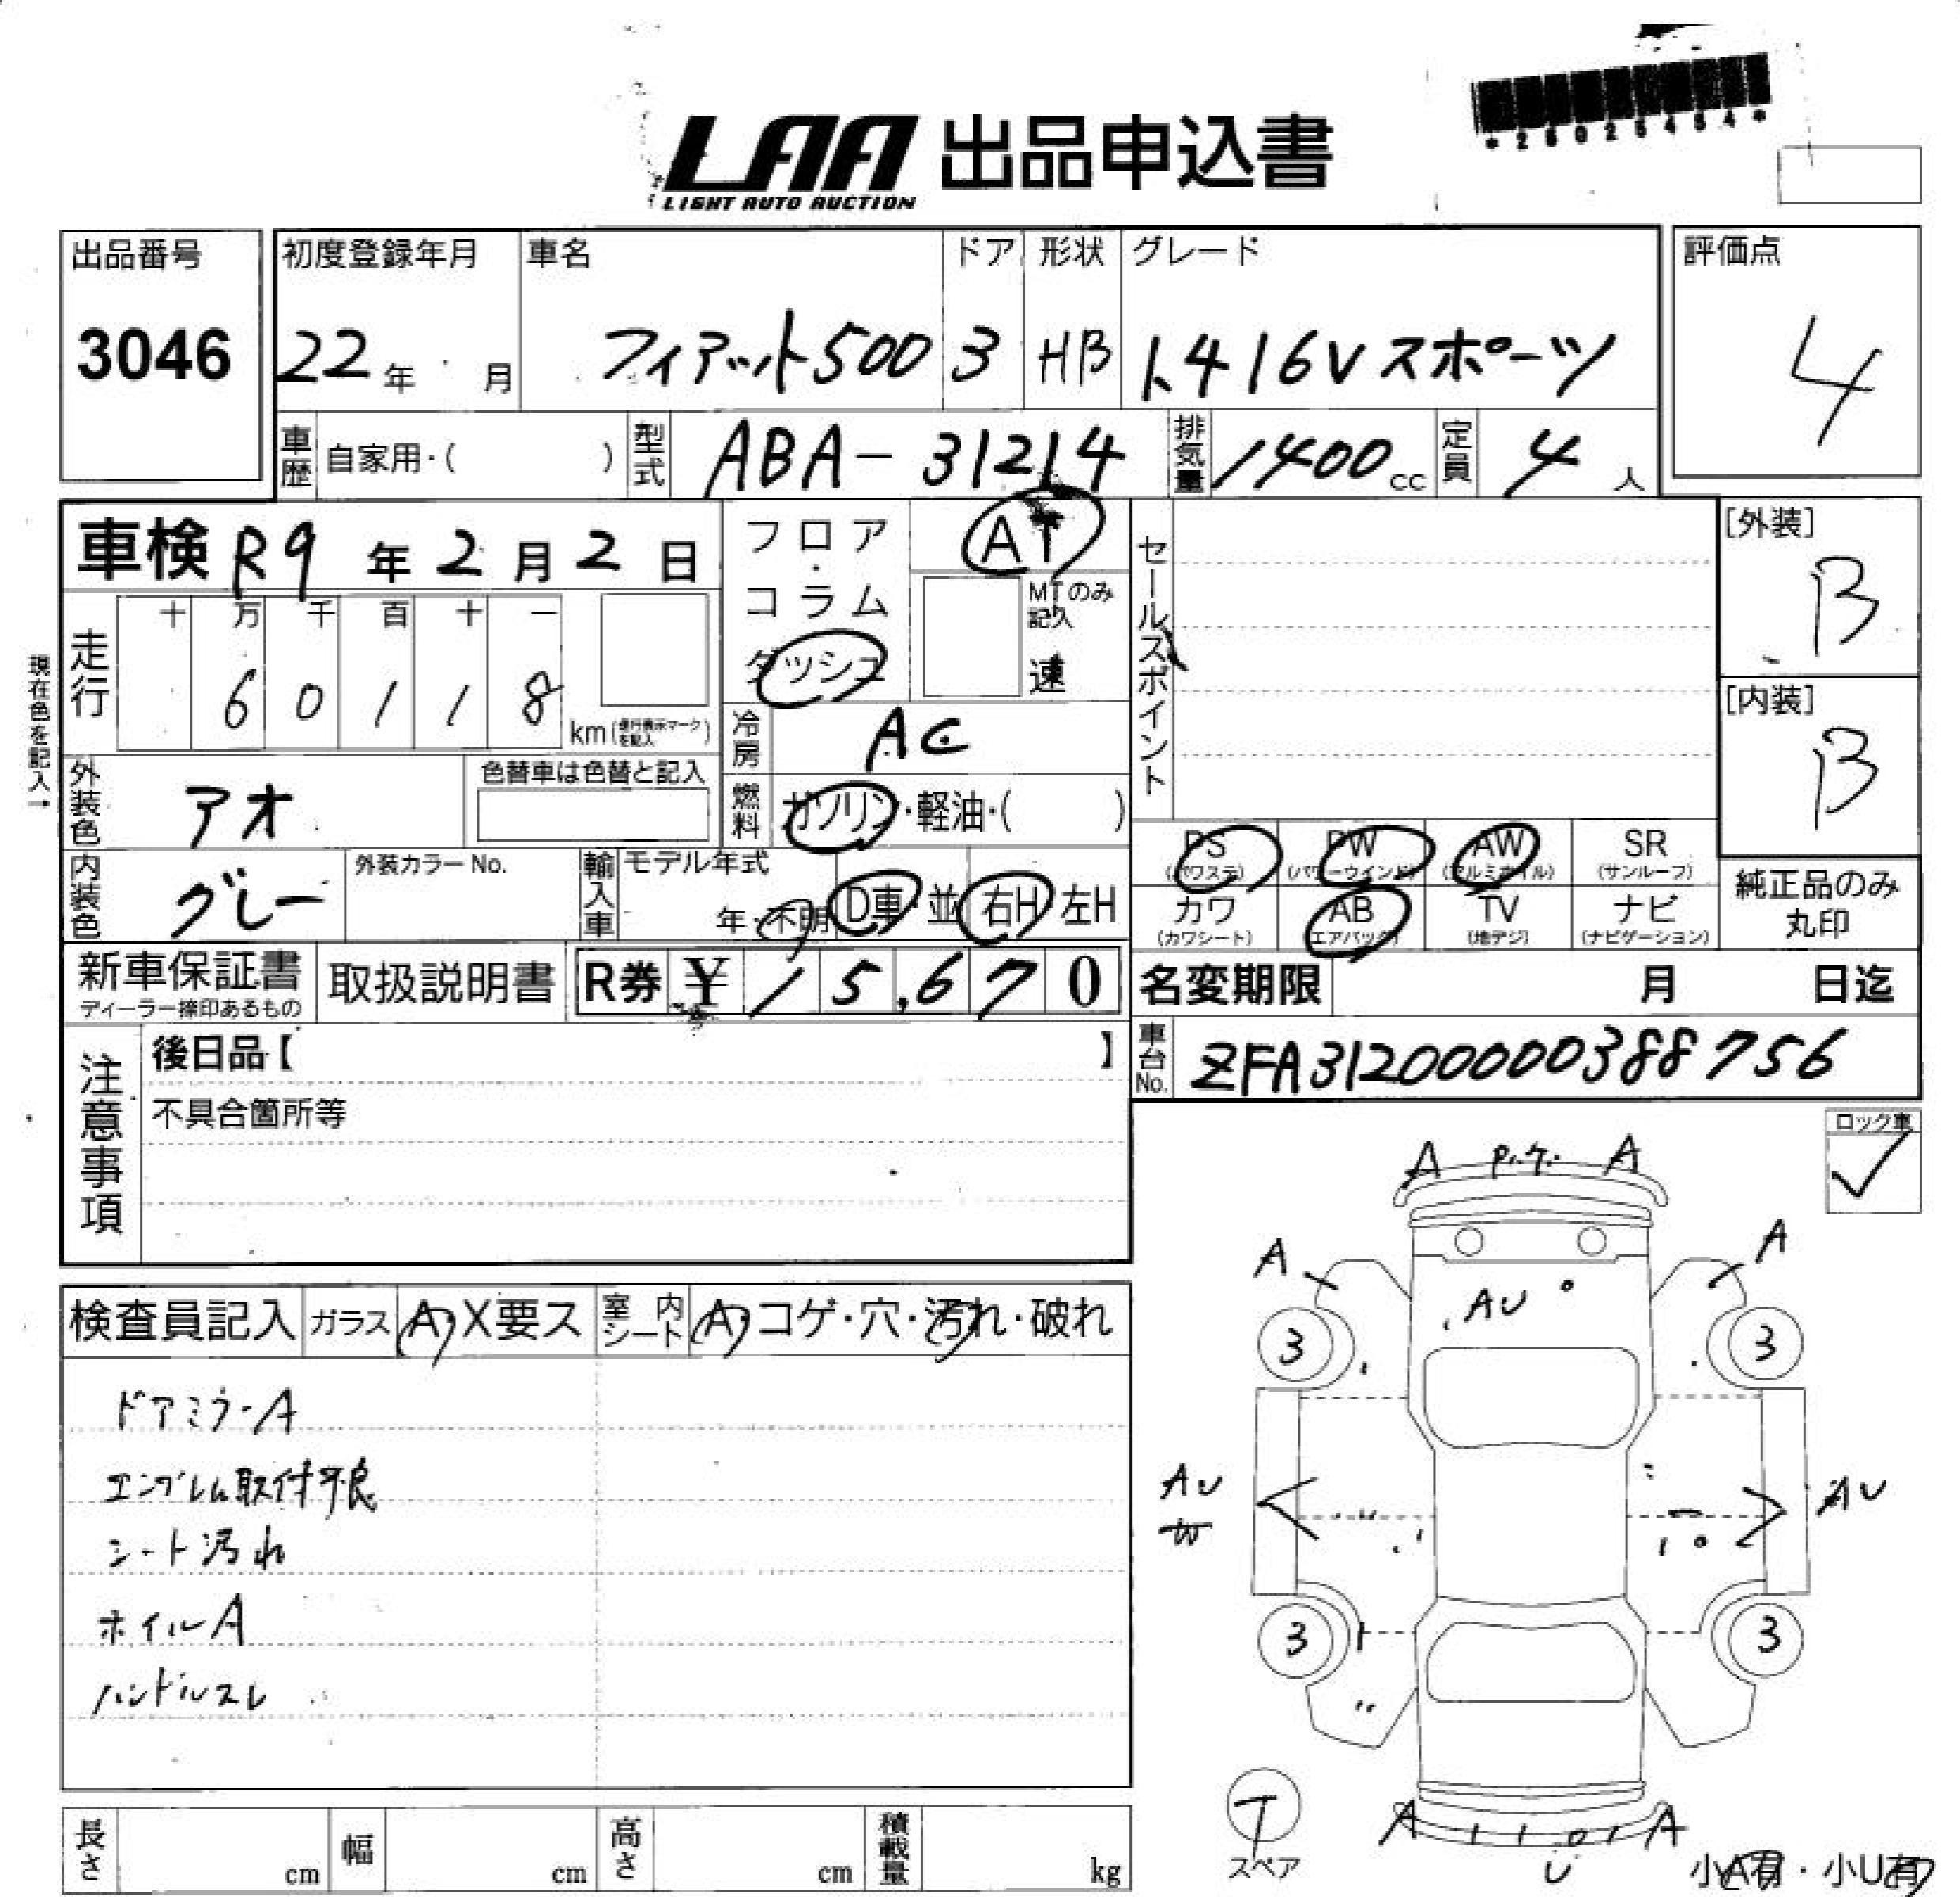 *26025454*
LAA 出品申込書
LIGHT AUTO AUCTION
出品番号 初度登録年月 車名 ドア 形状 グレード 評価点
3046 22年 月 フィアット500 3 HB 1.4 16V スポーツ 4
車歴 自家用・( ) 型式 ABA-31214 排気量 1400cc 定員 4人
車検 R9年2月2日 フロア・コラム ダッシュ AT MTのみ記入 速 セールスポイント [外装] B
現在色を記入→
走行 十 万 千 百 十 一
6 0 1 1 8 km (走行表示マークを記入)
冷房 AC [内装] B
外装色 アオ 色替車は色替と記入 燃料 ガソリン・軽油・( )
PS (パワステ) PW (パワーウインド) AW (アルミホイル) SR (サンルーフ)
内装色 グレー 外装カラーNo. 輸入車 モデル年式 年・不明 D車・並 右H 左H
カワ (カワシート) AB (エアバッグ) TV (地デジ) ナビ (ナビゲーション)
純正品のみ丸印
新車保証書 ディーラー捺印あるもの 取扱説明書 R券 ¥15,670 名変期限 月 日迄
注意事項 後日品【 】 車台No. ZFA31200000388756
不具合箇所等
ロック車 ✓
検査員記入 ガラス A・X要ス 室内シート A・コゲ・穴・汚れ・破れ
ドアミラーA
エンブレム取付不良
シート汚れ
ホイルA
ハンドルスレ
A A
A A
AU
3 3
AU AU
W
3 3
T スペア
A A
U
小A有・小U有
長さ cm 幅 cm 高さ cm 積載量 kg